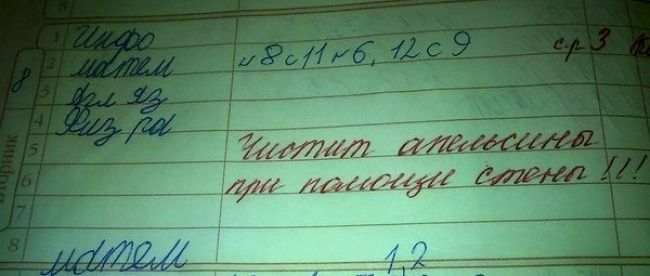 8
1 Инфо
2 матем н 8 с 11 н 6, 12 с 9 ср 3
3 Агл яз
4 Физ ра
5 Чистит апельсины
6 при помощи стены!!!
7
8 матем 1,2
8
вторник